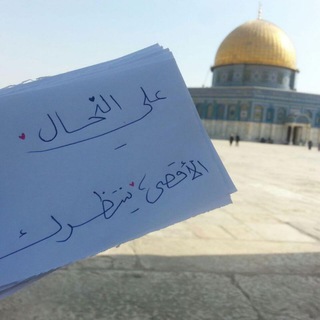 علي النحال
الأقصى ينتظرك